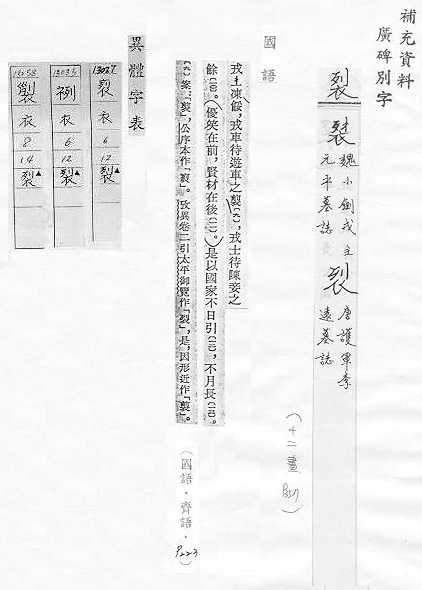 補充資料
廣碑別字
裂
魏小劍戍主
元平墓誌
裂
唐護軍李
遠墓誌
（十二畫 P217）
國語
戎士凍餒，戎車待遊車之（九），戎士待陳妾之
餘（一〇）。優笑在前，賢材在後（一一）。是以國家不日引（一二），不月長（一三）。
（九）案：「」，公序本作「」。攷異卷二引太平御覽作「裂」，是，因形近作「」。
（國語．齊語．P223）
異體字表
13027 裂 衣 6 12 裂▲
13035 衣 6 12 裂▲
13058 衣 8 14 裂▲